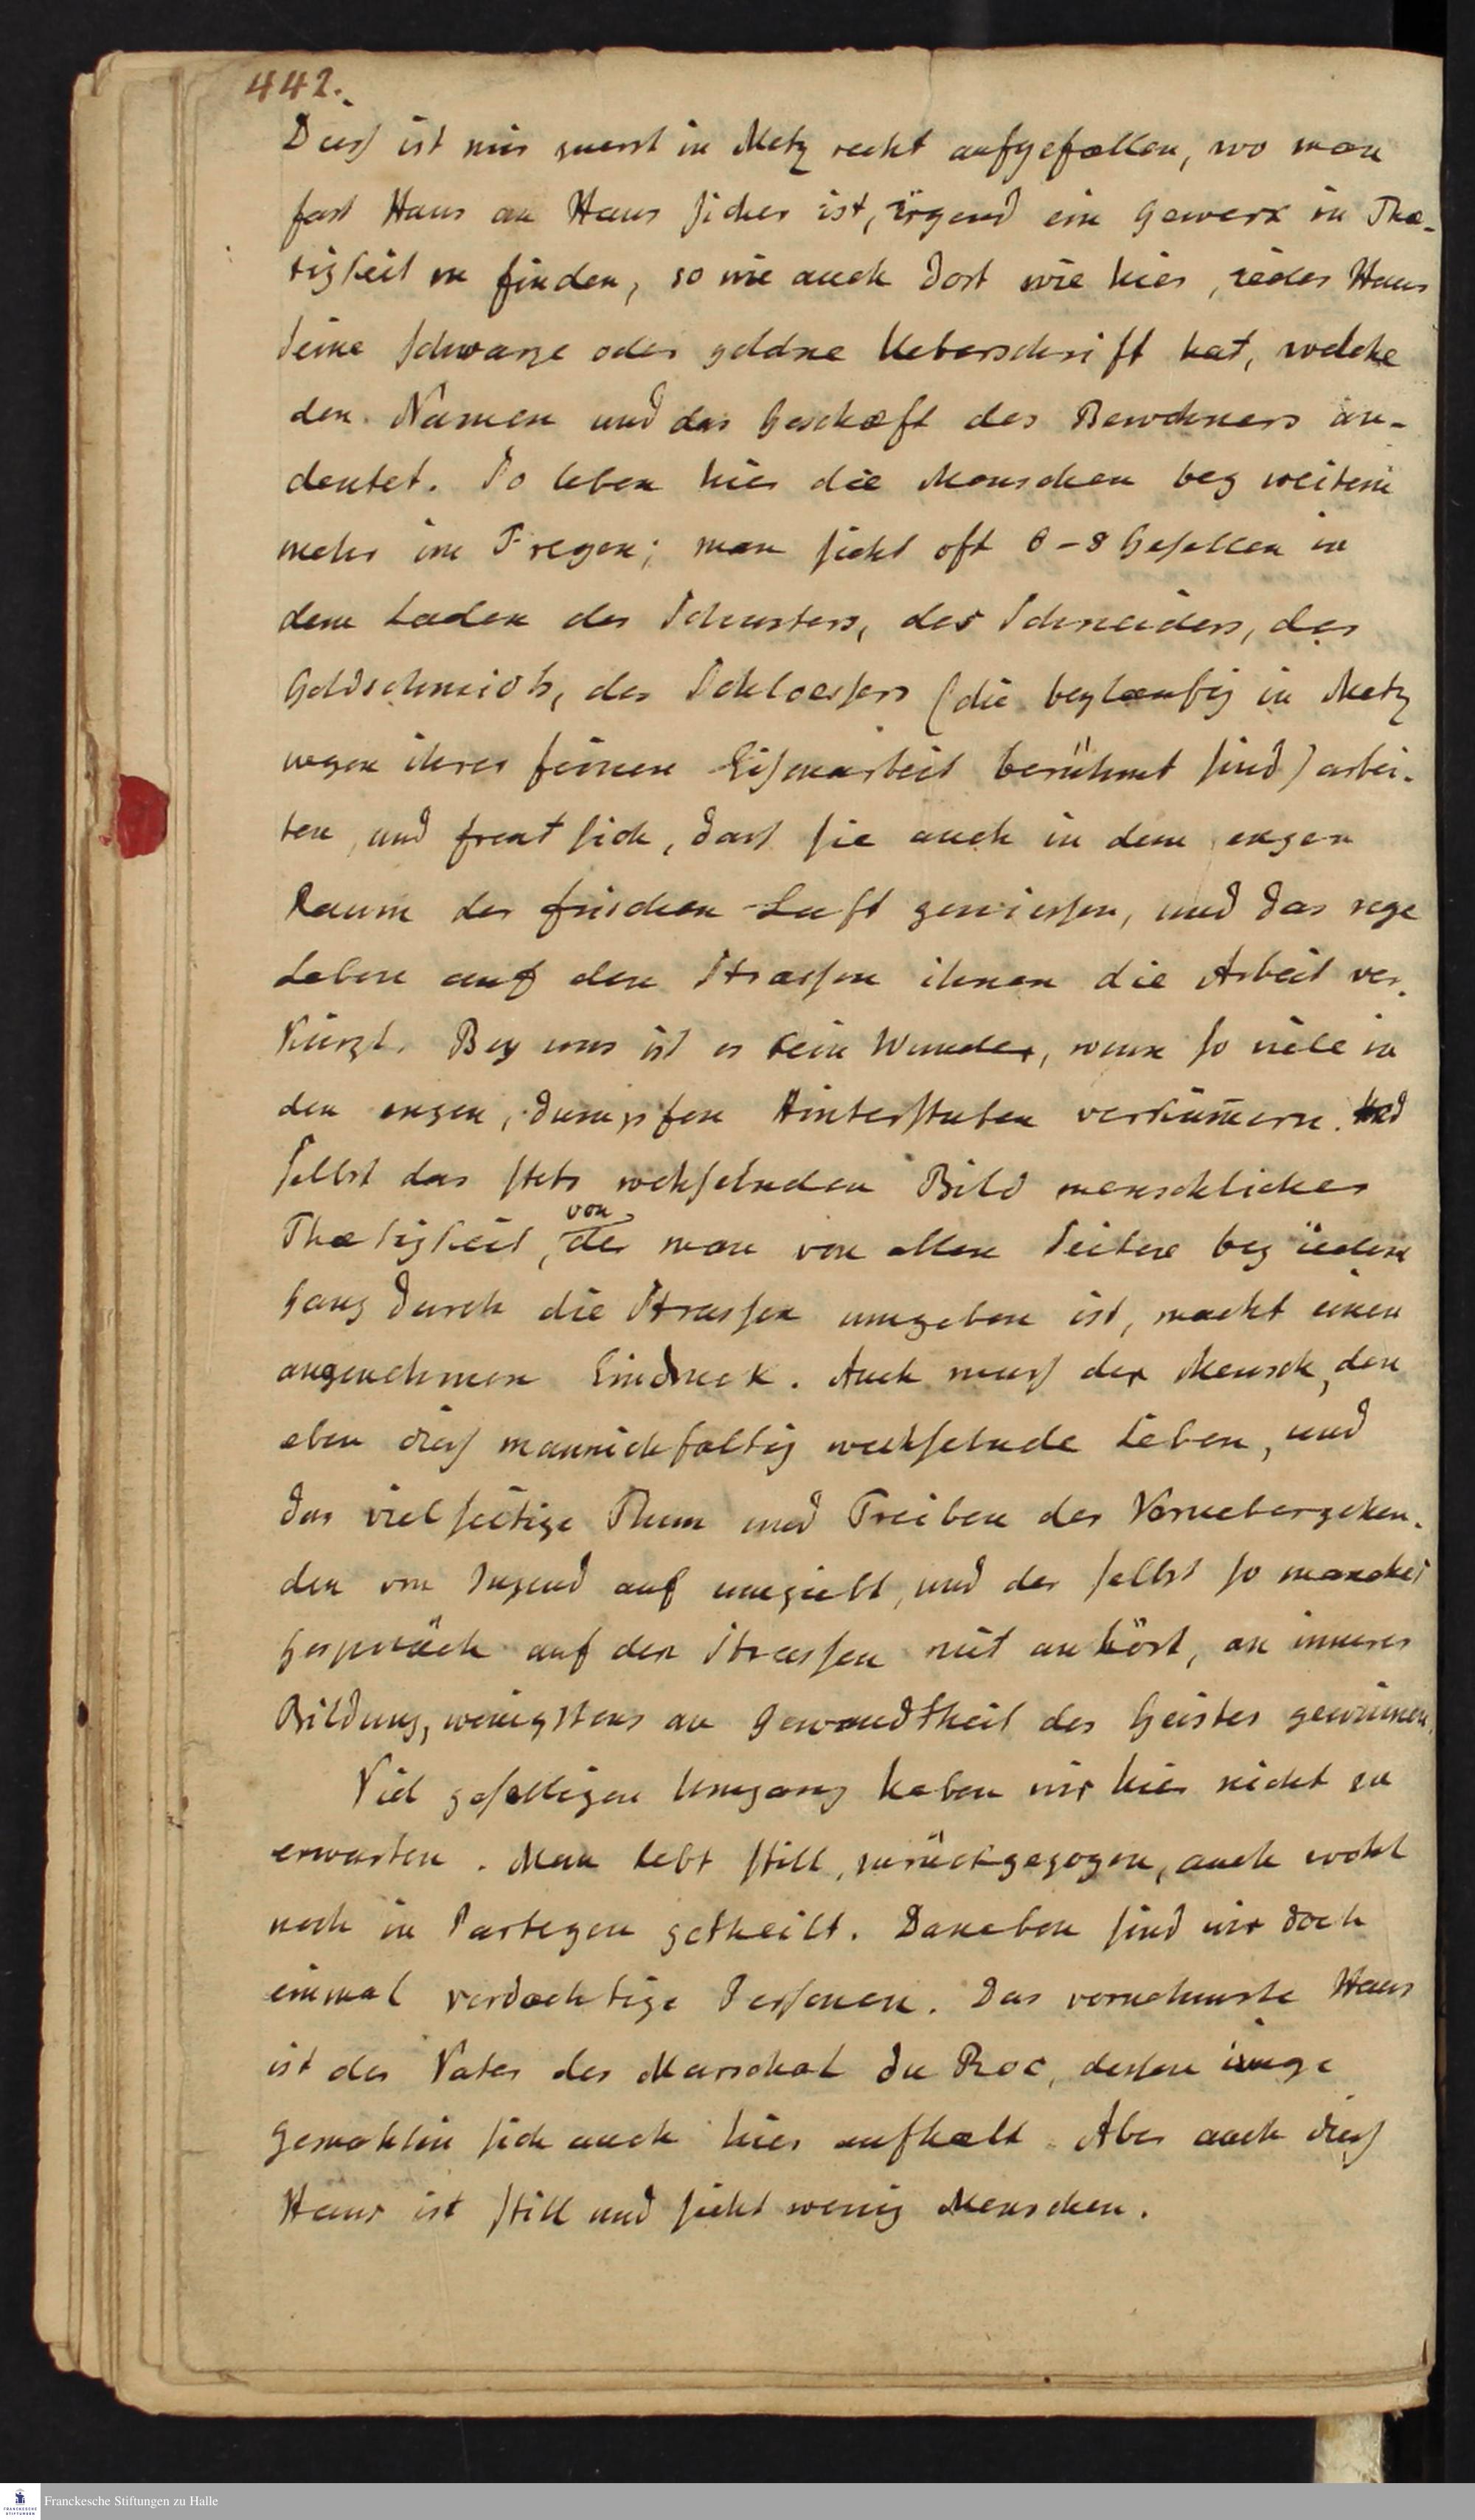 442.
Diess ist mir zuerst in Metz recht aufgefallen, wo man
fast Haus an Haus sicher ist, irgend ein Gewerk in Thae-
tigkeit zu finden, so wie auch dort wie hier, iedes Haus
seine schwarze oder goldne Ueberschrift hat, welche
den Namen und das Geschaeft des Bewohners an-
deutet. So leben hier die Menschen bey weitem
mehr im Freyen; man sieht oft 6-8 Gesellen in
dem Laden des Schusters, des Schneiders, des
Goldschmidts, des Schloessers (die beylaeufig in Metz
wegen ihrer feinen Eisenarbeit berühmt sind) arbei-
ten, und freut sich, dass sie auch in dem engen
Raum der frischen Luft geniessen, und das rege
Leben auf den Strassen ihnen die Arbeit ver-
kürzt. Bey uns ist es kein Wunder, wenn so viele in
den engen, dumpfen Hinterstuben verkümern. Und
selbst das stets wechselnden Bild menschlicher
Thaetigkeit, von der man von allen Seiten bey iedem
Gang durch die Strassen umgeben ist, macht einen
angenehmen Eindruck. Auch muss der Mensch, den
eben diess mannichfaltig wechselnde Leben, und
das vielseitige Thun und Treiben der Voruebergehen-
den von Jugend auf umgiebt, und der selbst so manches
Gespräch auf den Strassen mit anhört, an innerer
Bildung, wenigstens an Gewandtheit des Geistes gewinnen.
Viel geselligen Umgang haben wir hier nicht zu
erwarten. Man lebt still, zurückgezogen, auch wohl
noch in Parteyen getheilt. Daneben sind wir doch
einmal verdachtige Personen. Das vornehmste Haus
ist der Vater des Marschal Du Roc, dessen iunge
Gemahlin sich auch hier aufhaelt. Aber auch diess
Haus ist still und sieht wenig Menschen.
Franckesche Stiftungen zu Halle